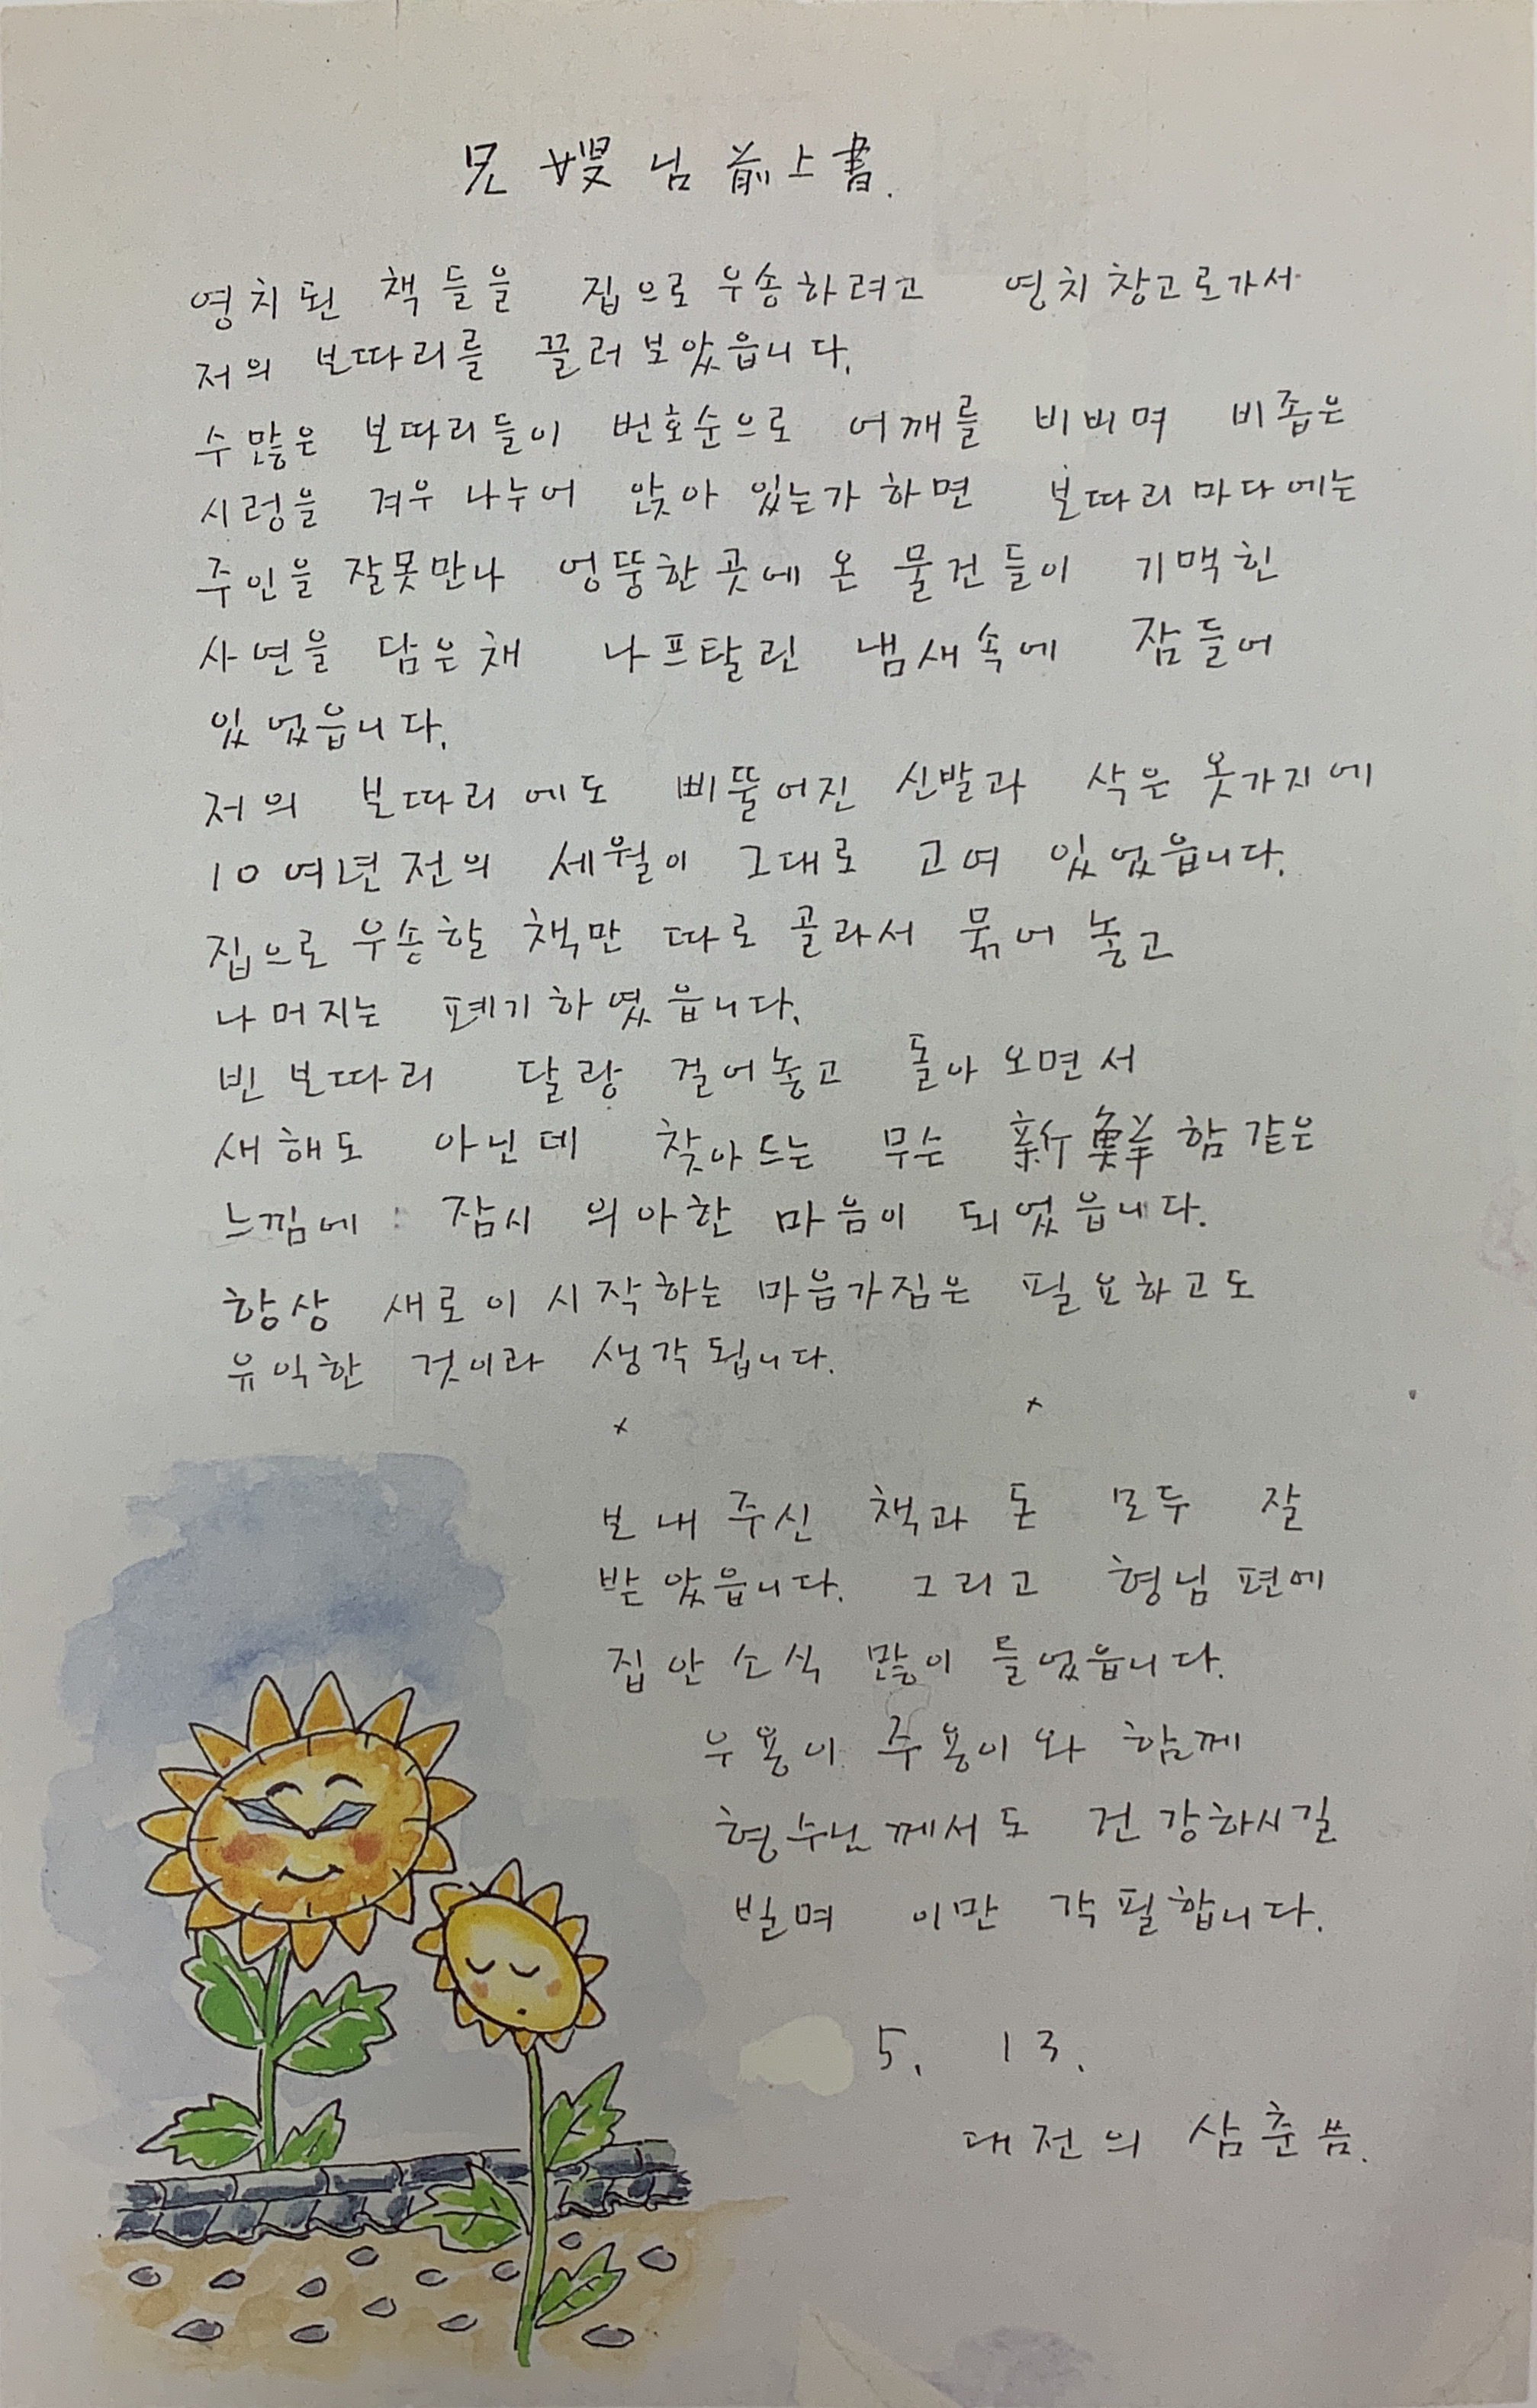 兄嫂님前上書.
영치된 책들을 집으로 우송하려고 영치창고로가서
저의 보따리를 끌러보았읍니다.
수많은 보따리들이 번호순으로 어깨를 비비며 비좁은
시렁을 겨우 나누어 앉아 있는가 하면 보따리마다에는
주인을 잘못만나 엉뚱한 곳에 온 물건들이 기맥힌
사연을 담은채 나프탈린 냄새속에 잠들어
있었읍니다.
저의 보따리에도 삐뚤어진 신발과 삭은 옷가지에
10여년전의 세월이 그대로 고여 있었읍니다.
집으로 우송할 책만 따로 골라서 묶어 놓고
나머지는 폐기하였읍니다.
빈 보따리 달랑 걸어놓고 돌아오면서
새해도 아닌데 찾아드는 무슨 新鮮함같은
느낌에 잠시 의아한 마음이 되었읍니다.
항상 새로이 시작하는 마음가짐은 필요하고도
유익한 것이라 생각됩니다.
× ×
보내주신 책과 돈 모두 잘
받았읍니다. 그리고 형님편에
집안소식 많이 들었읍니다.
우용이 주용이와 함께
형수님께서도 건강하시길
빌며 이만 각필합니다.
5. 13.
대전의 삼춘 씀.